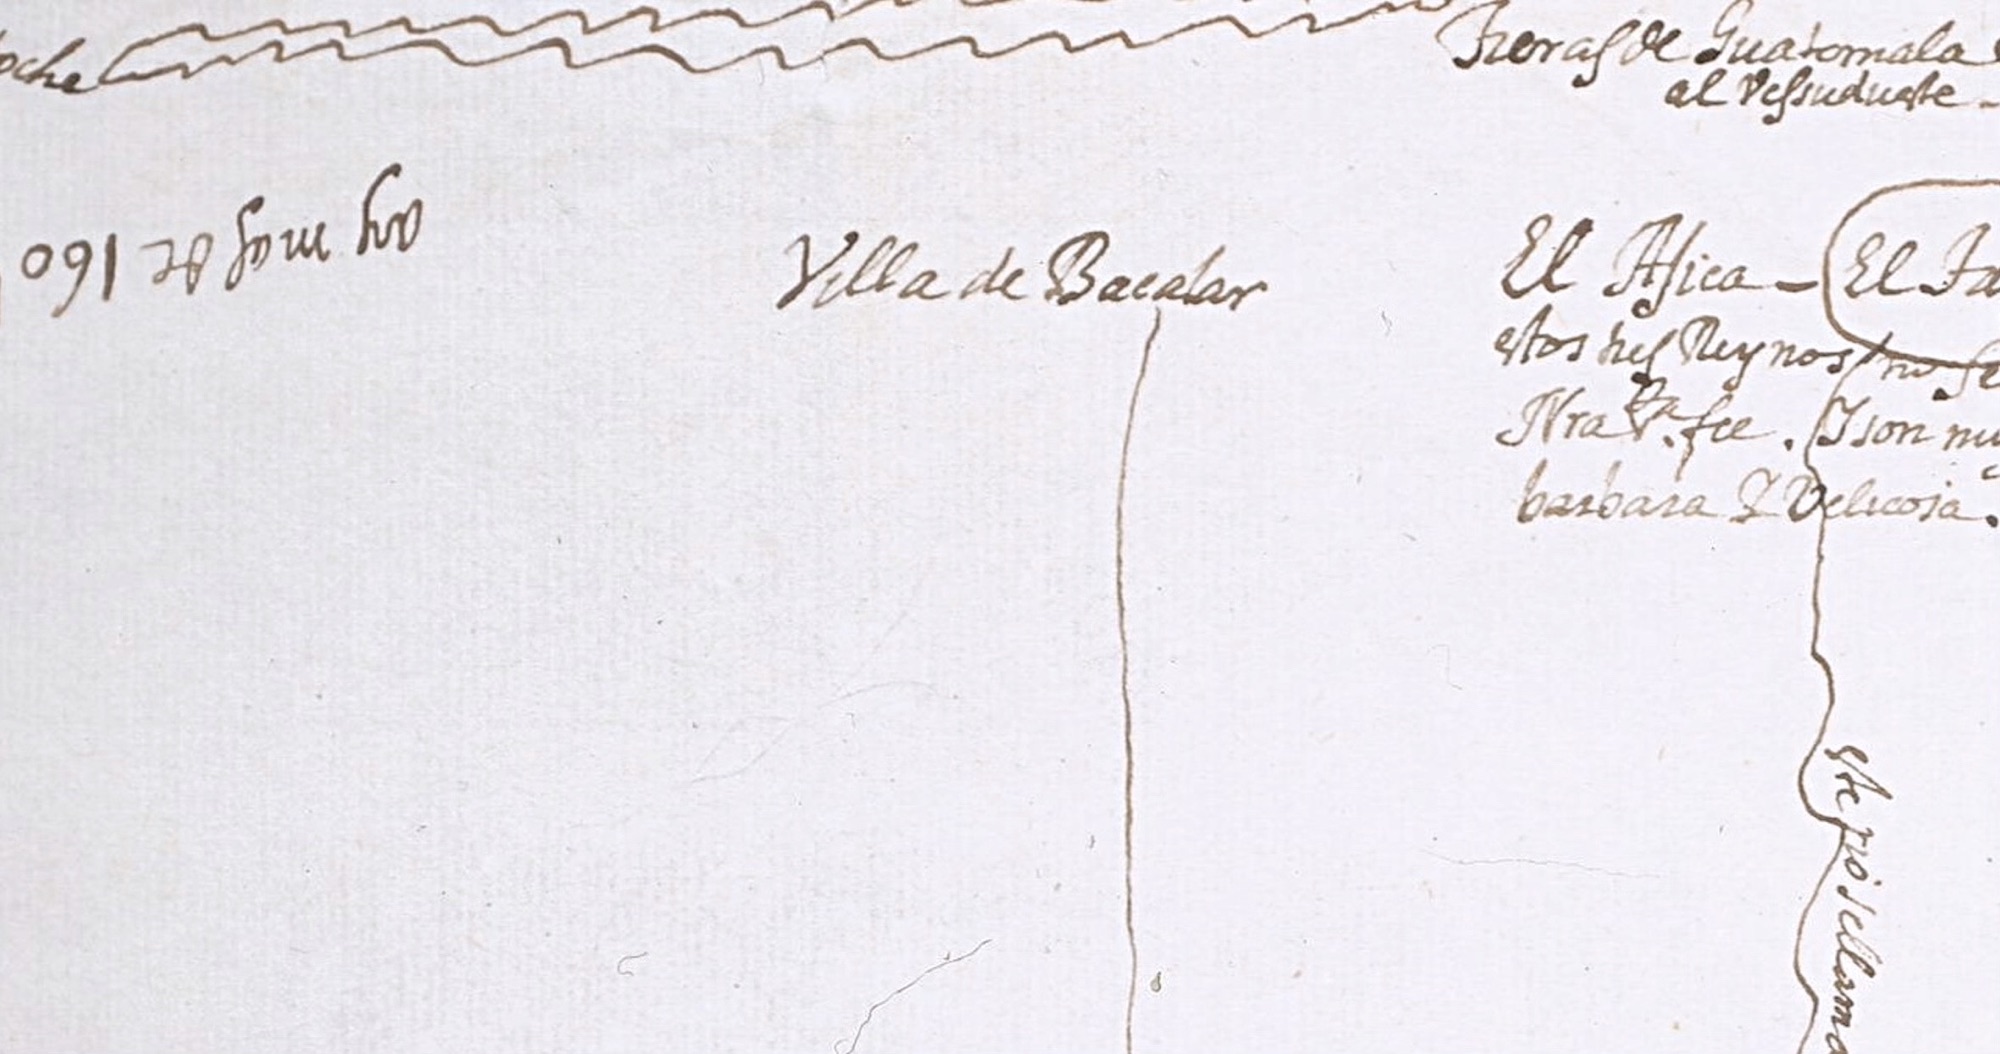 oche
Tierras de Guatemala
al Vessudueste -
ay mas de 160
Villa de Bacalar
El Ahiea - El Ta
estos tres Reynos no se
Nra Sta. fee. Y son mu
barbara Y Velicosa.
este rio se llama